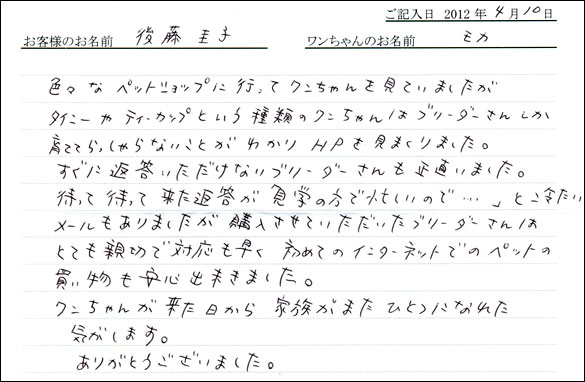 ご記入日 2012年4月10日
お客様のお名前 後藤圭子 ワンちゃんのお名前 モカ
色々なペットショップに行ってワンちゃんを見ていましたが
タイニーやティーカップという種類のワンちゃんはブリーダーさんしか
育ててらっしゃらないことがわかり HPを見まくりました。
すぐに返答いただけないブリーダーさんも正直いました。
待って待って来た返答が「見学の方で忙しいので…」と冷たい
メールもありましたが購入させていただいたブリーダーさんは
とても親切で対応も早く 初めてのインターネットでのペットの
買い物も安心出来きました。
ワンちゃんが来た日から 家族がまたひとつになれた
気がします。
ありがとうございました。